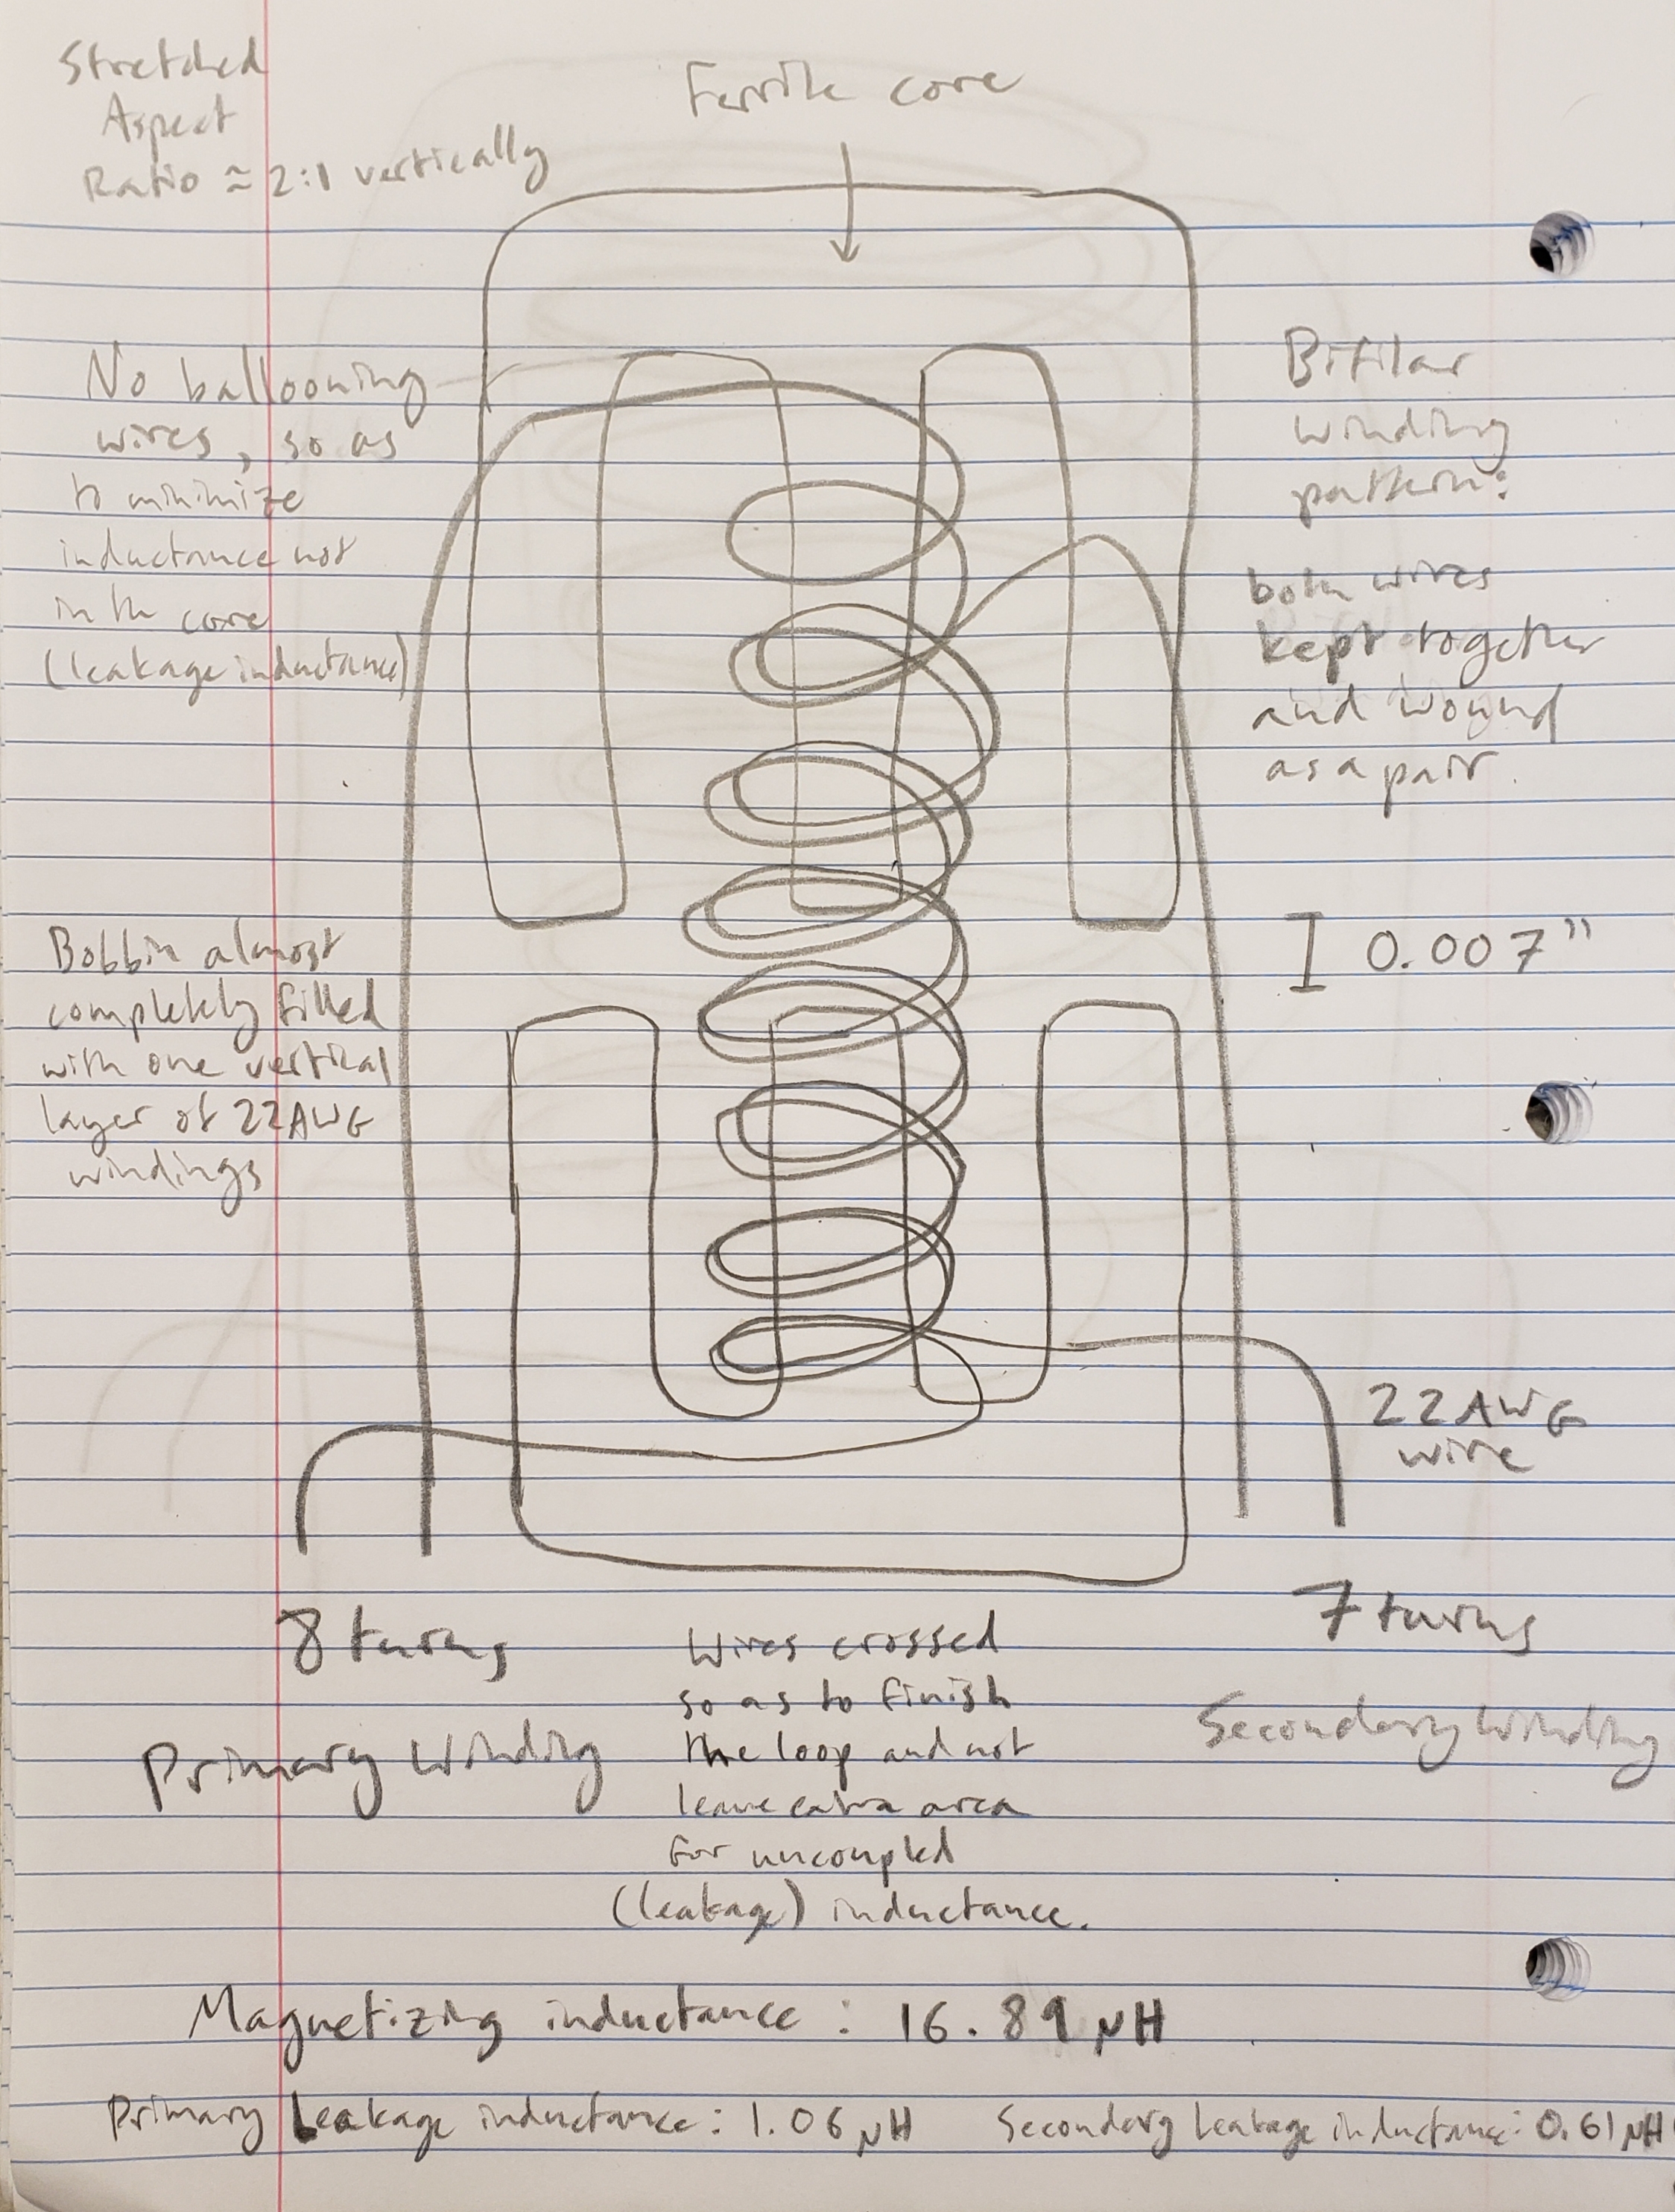 Stretched
Aspect
Ratio ≈ 2:1 vertically
Ferrite core
No ballooning
wires, so as
to minimize
inductance not
in the core
(leakage inductance)
Bifilar
winding
pattern:
both wires
kept together
and wound
as a pair.
Bobbin almost
completely filled
with one vertical
layer of 22AWG
windings
0.007"
22AWG
wire
8 turns
Primary Winding
Wires crossed
so as to finish
the loop and not
leave extra area
for uncoupled
(leakage) inductance.
7 turns
Secondary Winding
Magnetizing inductance: 16.89 μH
Primary Leakage inductance: 1.06 μH
Secondary Leakage inductance: 0.61 μH